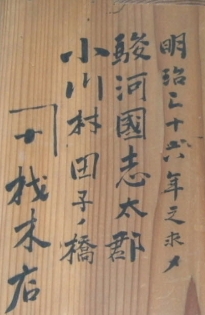 明治三十六年之求メ
駿河國志太郡
小川村田子ノ橋
材木店